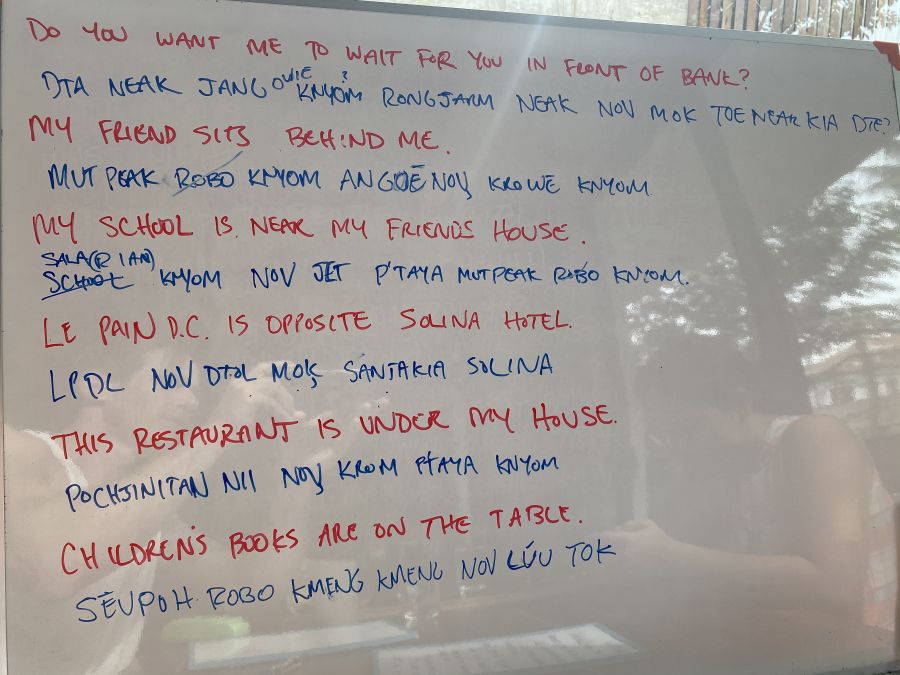 DO YOU WANT ME TO WAIT FOR YOU IN FRONT OF BANK?
DTA NEAK JANG OUIE KNYOM? RONGJARM NEAK NOV MOK TOENEARKIA DTE?
MY FRIEND SITS BEHIND ME.
MUTPEAK ROBO KNYOM ANGOĒ NOV KROWE KNYOM.
MY SCHOOL IS NEAR MY FRIENDS HOUSE.
SALA(RIAN)
SCHOOL KNYOM NOV JET P'TAYA MUTPEAK ROBO KNYOM.
LE PAIN D.C. IS OPPOSITE SOLINA HOTEL.
LPDC NOV DTOL MOK SANTAKIA SOLINA
THIS RESTAURANT IS UNDER MY HOUSE.
POCHJINITAN NII NOV KROM PTAYA KNYOM
CHILDREN'S BOOKS ARE ON THE TABLE.
SĒUPOH ROBO KMENG KMENG NOV LÚU TOK